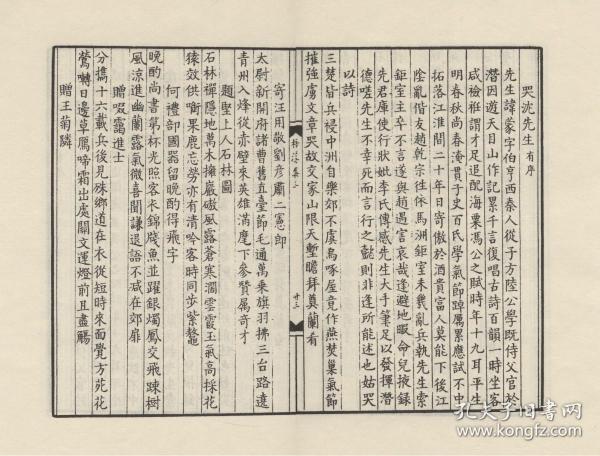 哭沈先生有序
先生諱蒙字伯亨酉秦人從子方陸公學既侍父官於
潛因遊天目山作記累千言復唱古詩百韻一時坐客
咸檢袵謂才足追配海粟馮公之賦時年十九耳平生
明春秋尚春淹貫子史百氏學氣節踔厲累應試不中
拓落江淮間二十年日寄傲於酒貴富人莫能下後江
陰亂偕友趙乾宗往依馬洲鉅室未幾亂兵執先生索
鉅室主卒不言遂與趙遇害哀哉逢避地暇命兒掖錄
先君庫使行狀妣李氏傳感先生大手筆足以發揮潛
德嗟先生不幸死而言行之懿則非逢所能述也姑哭
以詩
三楚皆兵祲中洲自樂郊不虞烏啄屋竟作燕焚巢氣節
摧強虜文章哭故交家山限天塹瞻拜奠蘭肴
寄汪用敬劉彥肅二憲郎
太尉新開府諸曹舊直臺節毛通萬乘旗羽拂三台路遶
青州入烽從赤壁來英雄滿麾下參贊屬奇才
題聖上人石林圖
石林禪隱地萬木擁巖磝風露蒼寒澗雲霞玉氣高採花
猿效供銜果鹿忘勞亦有清吟客時同步紫鼇
何禮部國器留晚酌得飛字
晚酌尚書第杯光照客衣錦牋魚並躍銀燭鳳交飛踈樹
風涼進幽蘭露氣微喜聞謙退語不減在郊扉
贈啜靄進士
分攜十六載兵後見殊鄉道在衣從短時來面覺方苑花
鶯囀日邊草馬啼霜出處關文運燈前且盡觴
贈王菊隣
梧溪集
廿三
孔夫子旧书网
www.kongfz.com